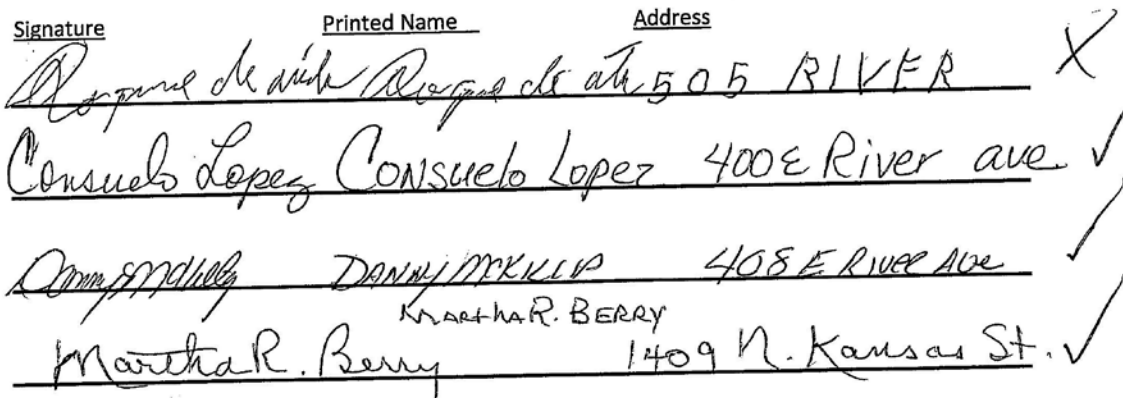 Signature Printed Name Address
de de 505 RIVER X
Consuelo Lopez Consuelo Lopez 400 E River ave ✓
DANNY MCKILLIP 408 E RIVER AVE ✓
MARTHA R. BERRY
Martha R. Berry 1409 N. Kansas St. ✓